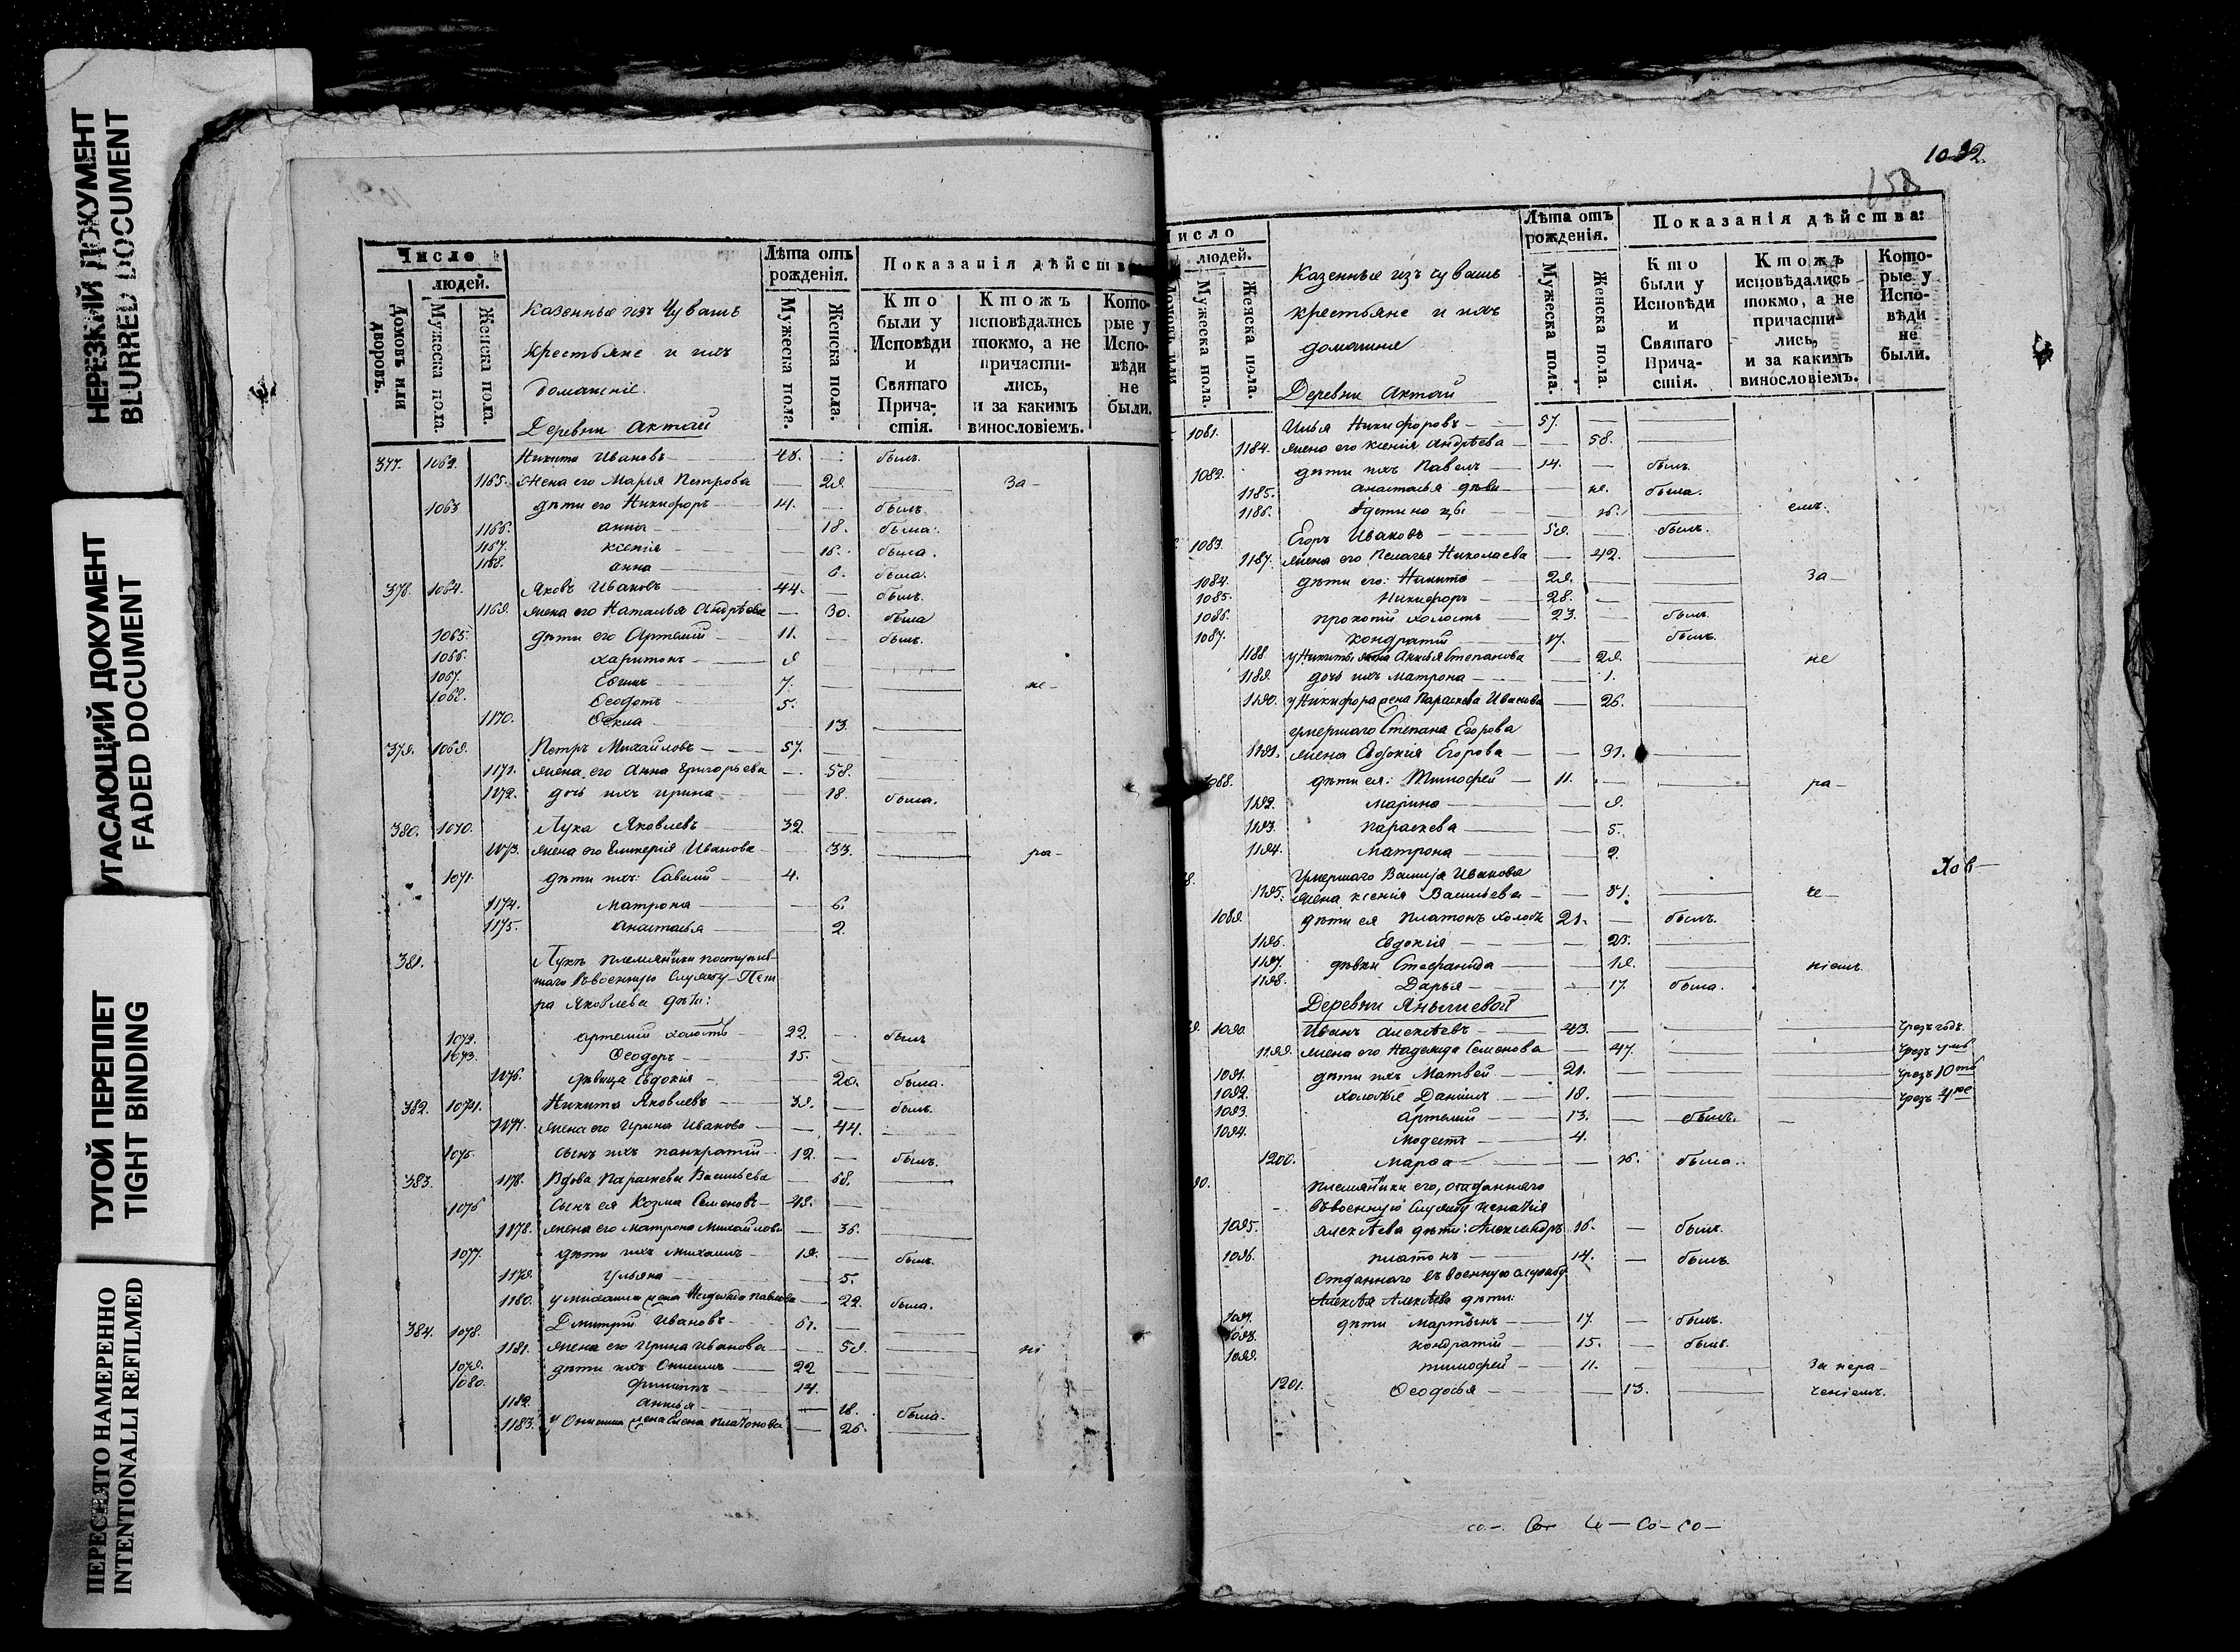 НЕРЕЗКИЙ ДОКУМЕНТ
BLURRED DOCUMENT
УГАСАЮЩИЙ ДОКУМЕНТ
FADED DOCUMENT
ТУГОЙ ПЕРЕПЛЕТ
TIGHT BINDING
ПЕРЕСНЯТО НАМЕРЕННО
INTENTIONALLI REFILMED
Число
людей.
Домовъ или дворовъ.
Мужеска пола.
Женска пола.
Казенные изъ Чувашъ
Крестьяне и ихъ
домашніе.
Деревни Актай
Лѣта отъ рожденія.
Мужеска пола.
Женска пола.
Показанія дѣйств
Кто были у Исповѣди и Святаго Причастія.
Ктожъ исповѣдались токмо, а не причастились, и за какимъ винословіемъ.
Которые у Исповѣди не были.
377. 1062. Никита Ивановъ 48. былъ.
1165. Жена его Марья Петрова 29. За-
1063 дѣти его Никифоръ 14. былъ.
1166. анна 18. была.
1167. ксенія 16. была.
1168. анна 6. была.
378. 1064. Яковъ Ивановъ 44. былъ.
1169. жена его Наталья Андрѣева 30. была
1065. дѣти его Артемій 11. былъ.
1066. харитонъ 9
1067. 7. не-
1068. Ѳеодотъ 5.
1170. Ѳекла 13.
379. 1069. Петръ Михайловъ 57.
1171. жена его Анна Григорьева 58.
1172. дочь ихъ ирина 18. была.
380. 1070. Лука Яковлевъ 32.
1173. жена его Гликерія Иванова 33. ра-
1071. дѣти ихъ: Савелій 4.
1174. Матрона 6.
1175. Анастасья 2.
381. Луки племянники поступив-
шаго въ военную Службу Пет
ра Яковлева дѣти:
1072. артемій холостъ 22. былъ
1073. Ѳеодоръ 15.
1176. дѣвица Евдокія 20. была.
382. 1074. Никита Яковлевъ 39. былъ.
1177. жена его Ирина Иванова 44.
1075. сынъ ихъ панкратій 12. былъ.
383. 1178. Вдова Параскева Васильева 68.
1076 сынъ ея Козма Семеновъ 48.
1178. жена его матрона Михайлова 36.
1077. дѣти ихъ михаилъ 19. былъ.
1179. Ульяна 5.
1180. у михаила жена Надежда павлова 22. была.
384. 1078. Дмитрій Ивановъ 61.
1181. жена его Ирина Иванова 59. ні
1079. дѣти ихъ Онисимъ 22
1080. филиппъ 14.
1182. 18. была.
1183. у Онисима жена Елена платонова 26.
1032.
Число
людей.
Мужеска пола.
Женска пола.
Казенные изъ чувашъ
крестьяне и ихъ
домашніе
Деревни Актай
Лѣта отъ рожденія.
Мужеска пола.
Женска пола.
Показанія дѣйства:
Кто были у Исповѣди и Святаго Причастія.
Ктожъ исповѣдались токмо, а не причастились, и за какимъ винословіемъ.
Которые у Исповѣди не были.
1081. Илья Никифоровъ 57.
1184. жена его ксенія андрѣева 58.
1082. дѣти ихъ Павелъ 14. былъ.
1185. анастасья была.
1186.
1083. Егоръ Ивановъ 59. былъ.
1187. жена его Пелагея Николаева 42.
1084. дѣти его: Никита 29. За-
1085. Никифоръ 28.
1086. прокопій холостъ 23. былъ.
1087. кондратій 17. былъ.
1188. у Никиты жена Степанова 29. не
1189. дочь ихъ Матрона 1.
1190. у Никифора жена Параскева Иванова 26.
умершаго Степана Егорова
1191. жена Евдокія Егорова 31.
1088. дѣти ея: Тимофей 11. ра-
1192. Марина 9.
1193. параскева 5.
1194. Матрона 2.
умершаго Иванова
1195. жена ксенія Васильева 51. че-
1089. дѣти ея платонъ холостъ 21. былъ.
1196. Евдокія 23.
1197. дѣвки Стефанида 19. ніемъ.
1198. Дарья 17. была.
Деревни Янышевой
1090. Иванъ алексѣевъ 43. чрезъ годъ.
1199. жена его Надежда Семенова 47.
1091. дѣти ихъ Матвей 21. чрезъ 10
1092. Даніилъ 18. чрезъ 4
1093. артемій 13. былъ.
1094. модестъ 4.
1200. марѳа 16. была.
племянники его, отданнаго
въ военную службу игнатія
1095. алексѣева дѣти: Александръ 16. былъ.
1096. платонъ 14. былъ.
Отданнаго въ военную службу
Алексѣя Алексѣева дѣти:
1097. дѣти Мартынъ 17. былъ.
1098. кондратій 15. былъ.
1099. тимофей 11. За нера-
1201. Ѳеодосья 13. ченіемъ.